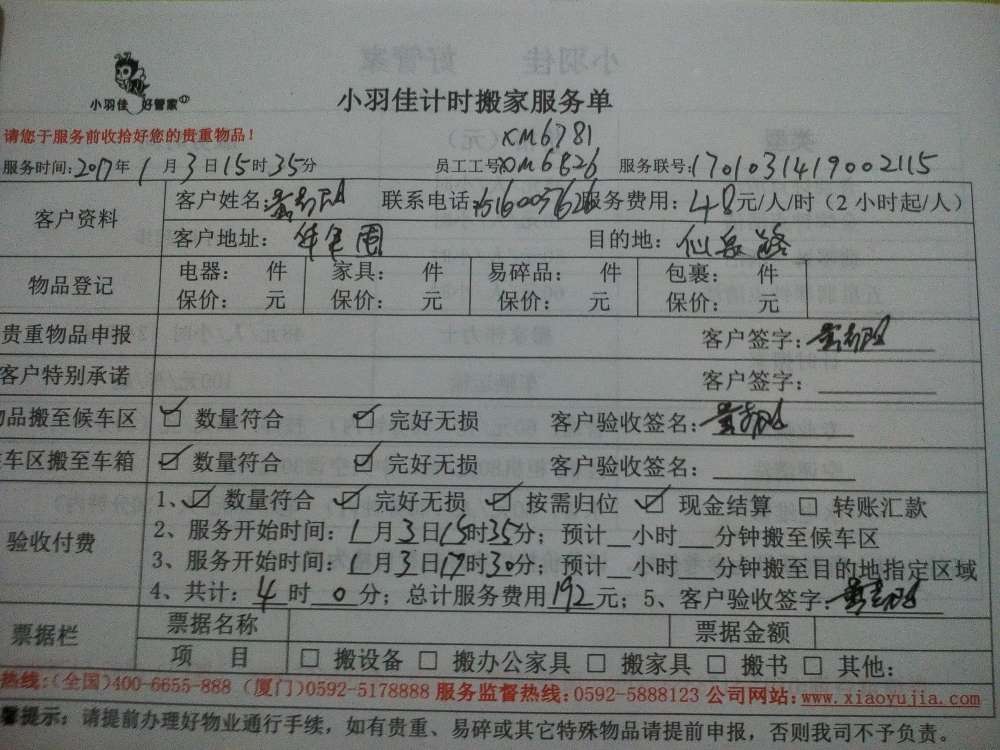 小羽佳 好管家
小羽佳计时搬家服务单
请您于服务前收拾好您的贵重物品！
XM6781
服务时间:2017年1月3日15时35分 员工工号:XM6826 服务联号:1701031419002115
客户资料 客户姓名: 联系电话: 服务费用:48元/人/时（2小时起/人）
客户地址: 目的地: 仙岳路
物品登记 电器: 件 家具: 件 易碎品: 件 包裹: 件
保价: 元 保价: 元 保价: 元 保价: 元
贵重物品申报 客户签字:
客户特别承诺 客户签字:
物品搬至候车区 数量符合 完好无损 客户验收签名:
车区搬至车箱 数量符合 完好无损 客户验收签名:
验收付费 1、数量符合 完好无损 按需归位 现金结算 转账汇款
2、服务开始时间:1月3日15时35分；预计__小时___分钟搬至候车区
3、服务开始时间:1月3日17时30分；预计__小时___分钟搬至目的地指定区域
4、共计:4时0分；总计服务费用192元；5、客户验收签字:
票据栏 票据名称 票据金额
项目 搬设备 搬办公家具 搬家具 搬书 其他:
热线:(全国)400-6655-888 (厦门)0592-5178888 服务监督热线:0592-5888123 公司网站:www.xiaoyujia.com
馨提示: 请提前办理好物业通行手续，如有贵重、易碎或其它特殊物品请提前申报，否则我司不予负责。